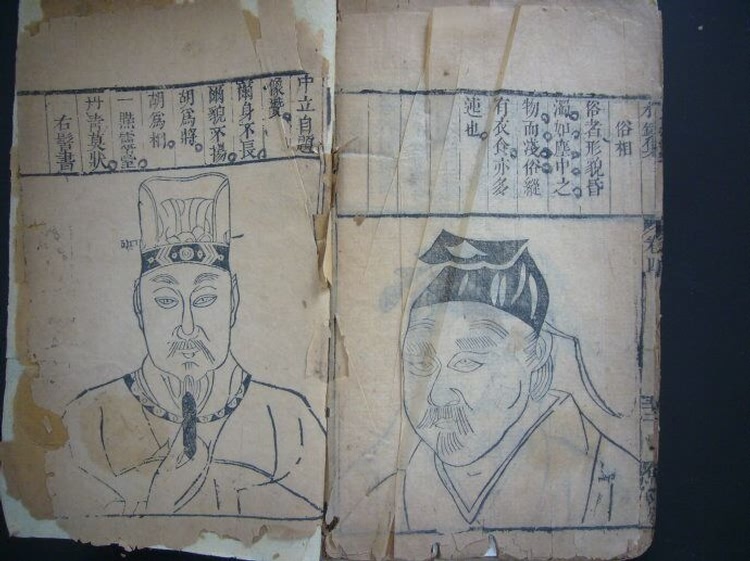 卷四
俗相
俗者形貌昏
濁如塵中之
物而淺俗縱
有衣食亦多
迍也
中立自題
像贊
爾身不長
爾貌不揚
胡爲將
胡爲相
一 靈臺
丹青莫狀
右 書